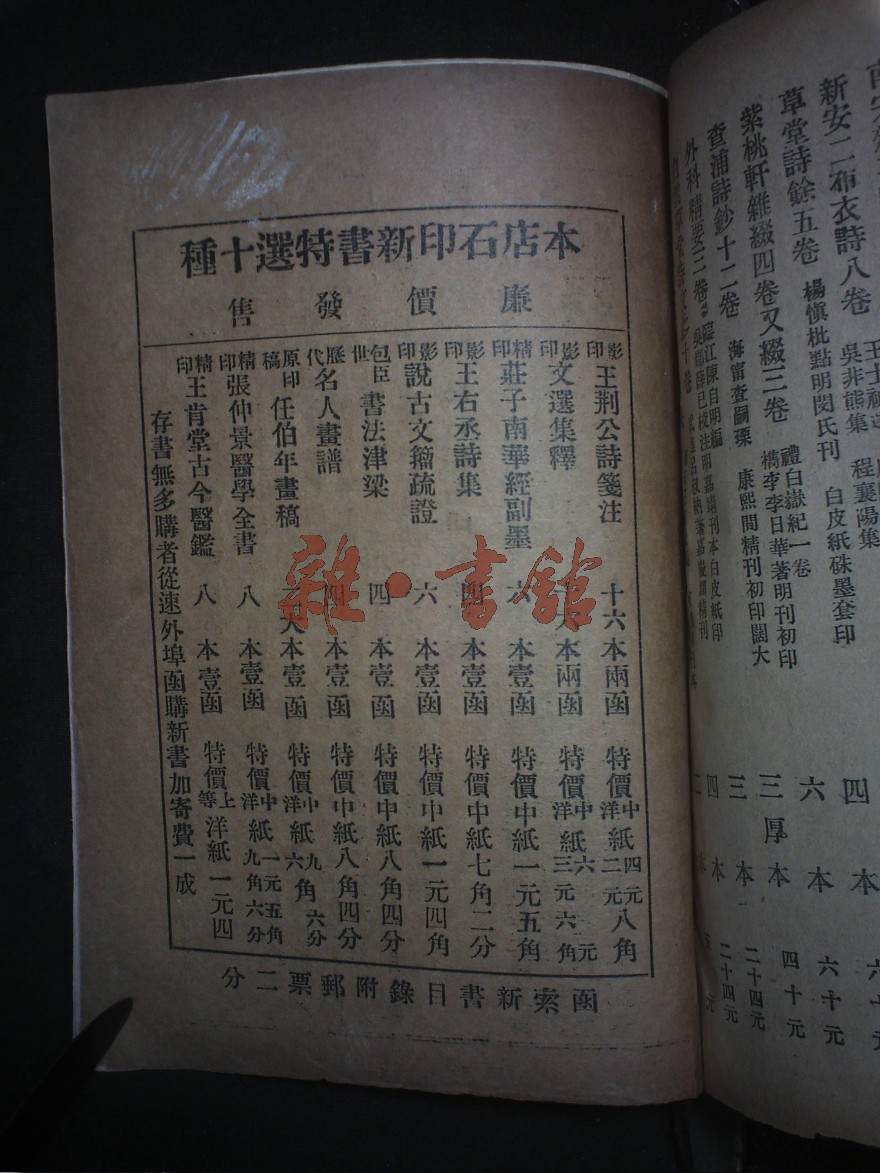 本店石印新書特選十種
廉價發售
影印王荊公詩箋注 十六本兩函 特價中紙四元八角 洋紙二元
影印文選集釋 本兩函 特價中紙六元 洋紙三元六角
精印莊子南華經副墨 六本壹函 特價中紙一元五角
影印王右丞詩集 四本壹函 特價中紙七角二分
影印說古文籀疏證 六本壹函 特價中紙一元四角
包世臣書法津梁 四本壹函 特價中紙八角四分
歷代名人畫譜 四本壹函 特價中紙八角四分
原印稿任伯年畫稿 六大本壹函 特價中洋紙九角六分
精印張仲景醫學全書 八本壹函 特價中紙一元五角 洋紙九角六分
精印王肯堂古今醫鑑 八本壹函 特價上等洋紙一元四
存書無多購者從速外埠函購新書加寄費一成
函索新書目錄附郵票二分
雜·書館
新安二布衣詩八卷 吳非熊集 程襄陽集 六本 六十元
草堂詩餘五卷 楊慎批點明閔氏刊 白皮紙硃墨套印 六本 六十元
紫桃軒雜綴四卷又綴三卷 禮白嶽紀一卷 檇李李日華著明刊初印 三厚本 四十元
查浦詩鈔十二卷 海甯查嗣瑮 康熙間精刊初印闊大 三本 二十四元
外科精要三卷 臨江陳自明編 吳郡薛已校注明嘉靖刊本白皮紙印 四本 二十四元